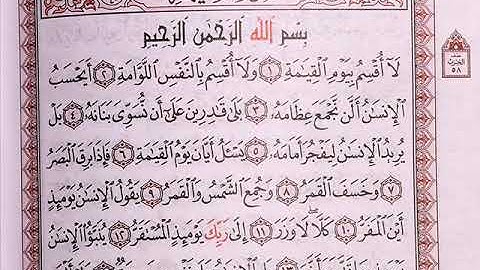 بِسْمِ ٱللَّهِ ٱلرَّحْمَٰنِ ٱلرَّحِيمِ
لَآ أُقْسِمُ بِيَوْمِ ٱلْقِيَٰمَةِ ١ وَلَآ أُقْسِمُ بِٱلنَّفْسِ ٱللَّوَّامَةِ ٢ أَيَحْسَبُ
ٱلْإِنسَٰنُ أَلَّن نَّجْمَعَ عِظَامَهُۥ ٣ بَلَىٰ قَٰدِرِينَ عَلَىٰٓ أَن نُّسَوِّىَ بَنَانَهُۥ ٤ بَلْ
يُرِيدُ ٱلْإِنسَٰنُ لِيَفْجُرَ أَمَامَهُۥ ٥ يَسْـَٔلُ أَيَّانَ يَوْمُ ٱلْقِيَٰمَةِ ٦ فَإِذَا بَرِقَ ٱلْبَصَرُ
٧ وَخَسَفَ ٱلْقَمَرُ ٨ وَجُمِعَ ٱلشَّمْسُ وَٱلْقَمَرُ ٩ يَقُولُ ٱلْإِنسَٰنُ يَوْمَئِذٍ
أَيْنَ ٱلْمَفَرُّ ١٠ كَلَّا لَا وَزَرَ ١١ إِلَىٰ رَبِّكَ يَوْمَئِذٍ ٱلْمُسْتَقَرُّ ١٢ يُنَبَّؤُا۟ ٱلْإِنسَٰنُ
الحزب
٥٨